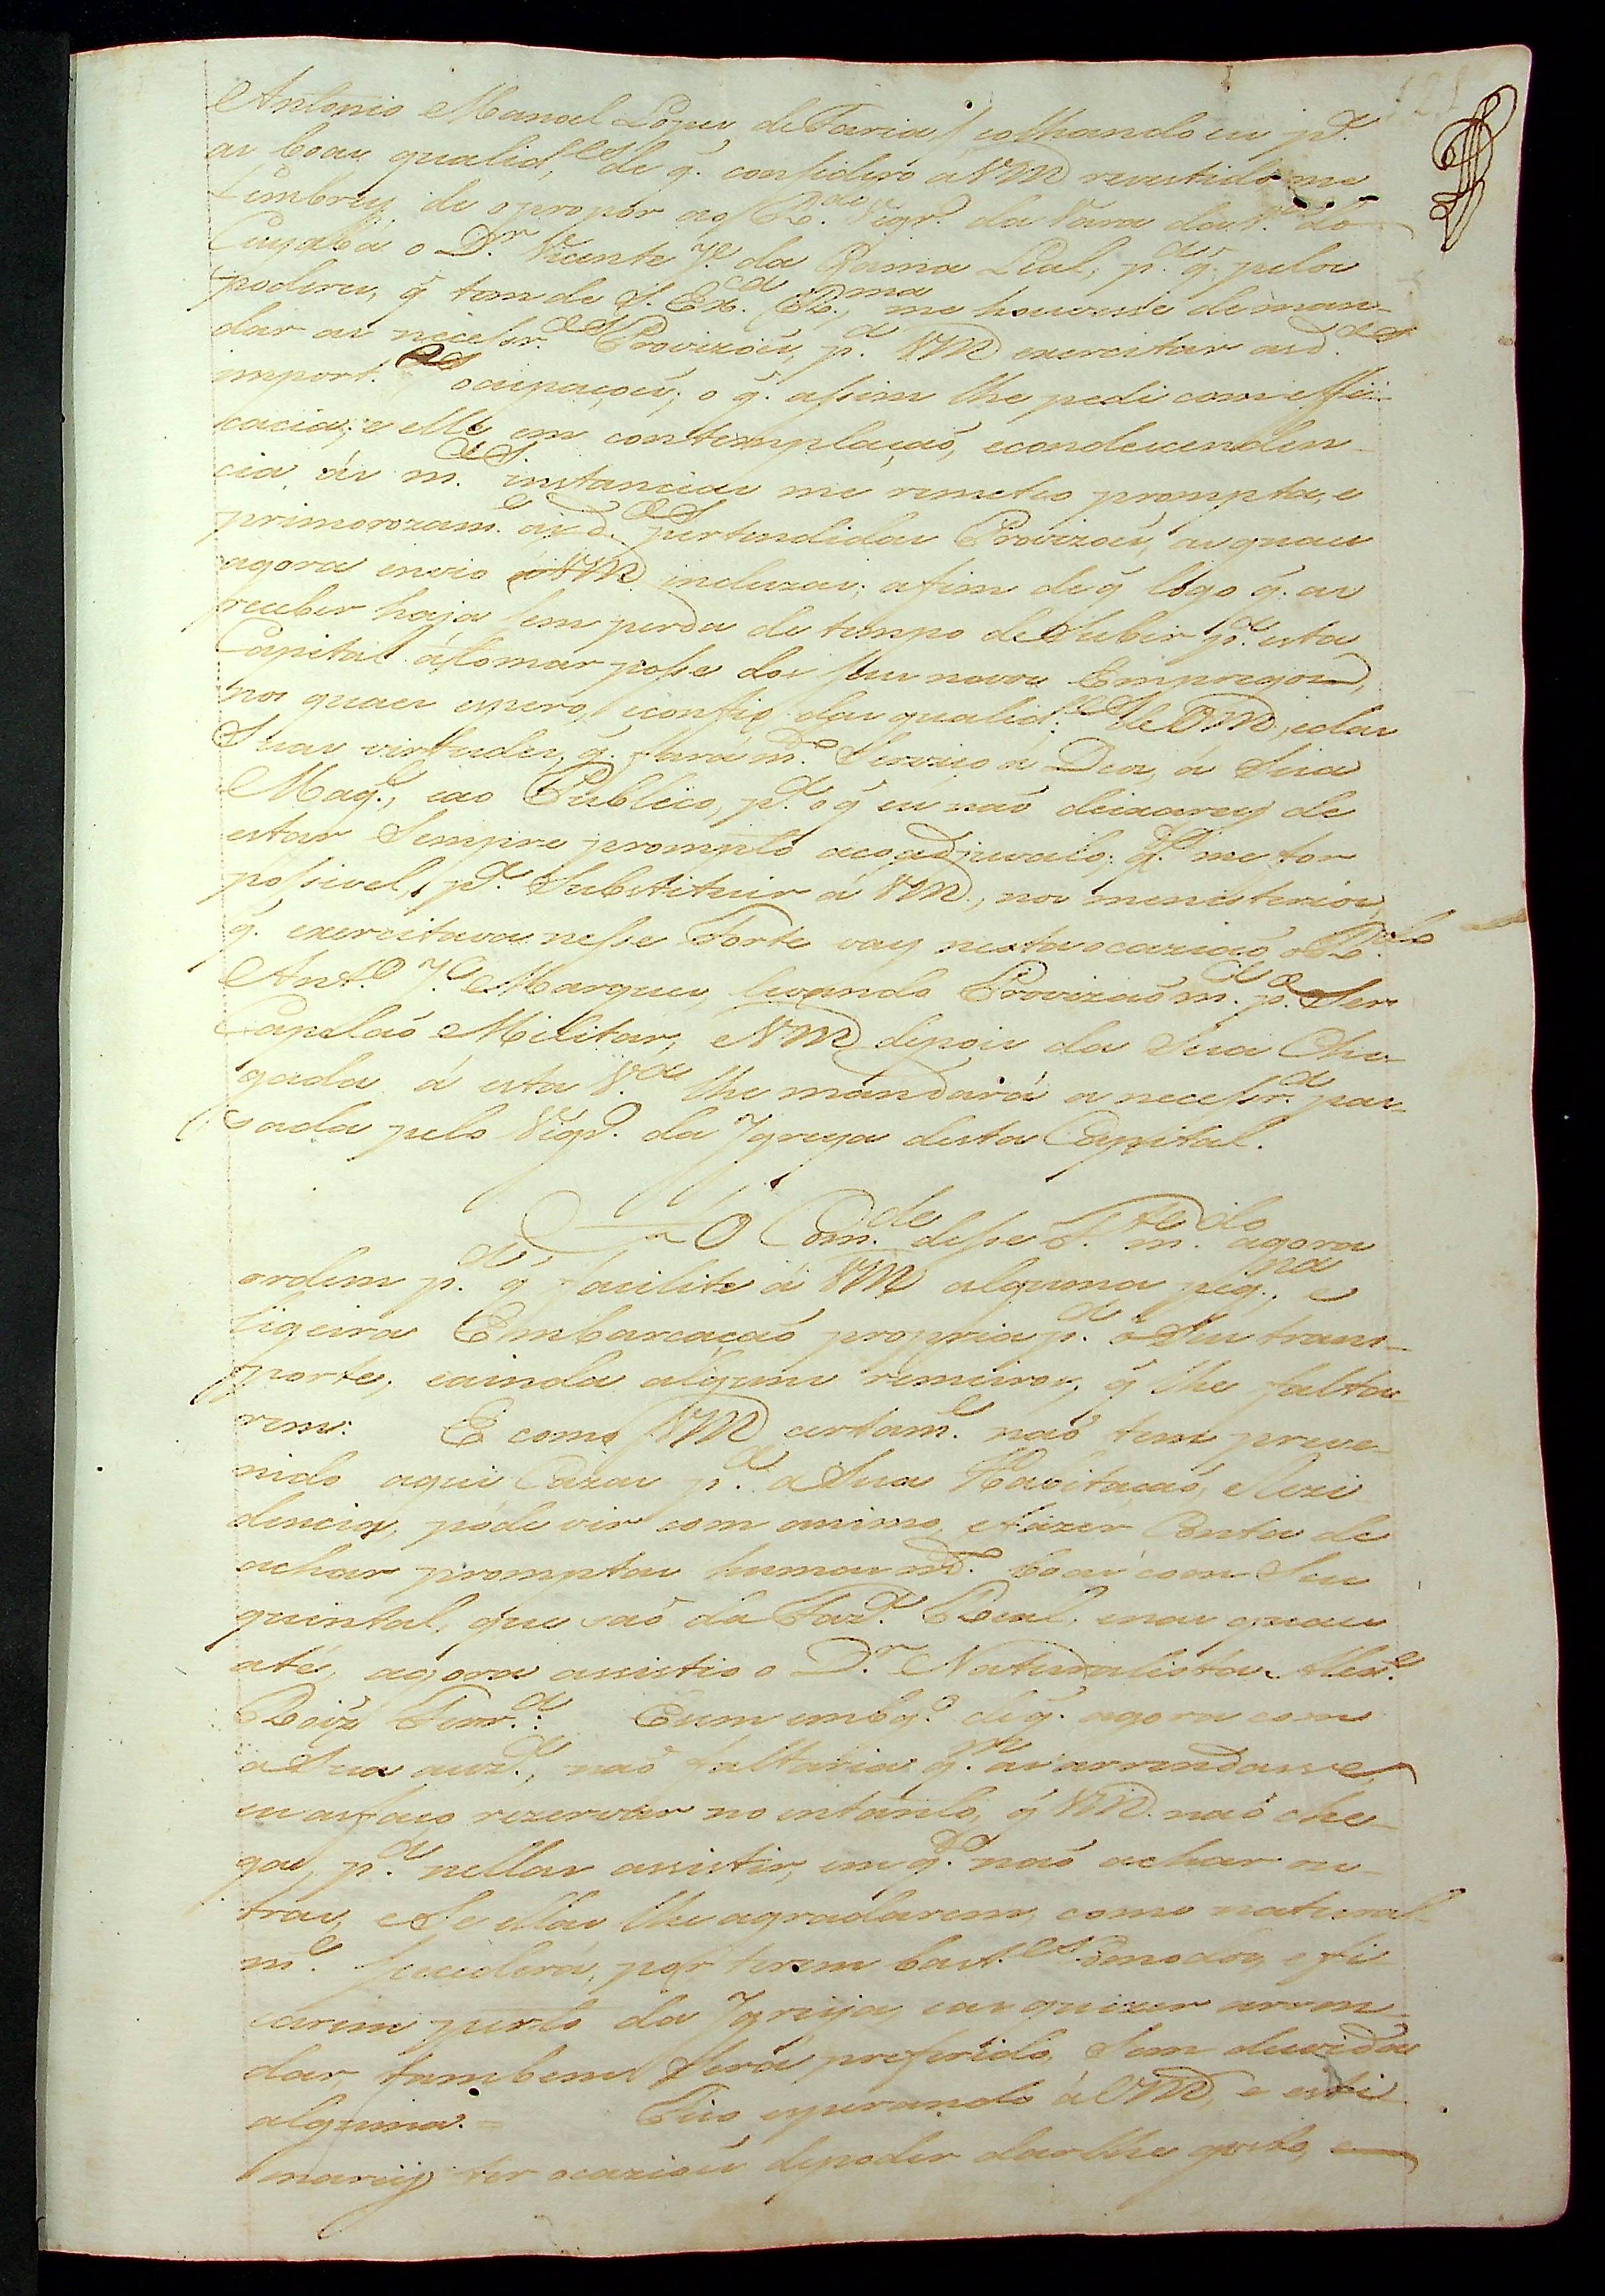 121
Antonio Manoel Lopes deFaria / eolhando eu p.ª
as boas qualid.es de q̃. considero a VM revestido me
Lembrey de o propor ao R.do Vigr.º da Vara da V.ª do
Cuyabá o D.r Vicente J.e da Gama Leal, p.ª q̃. pelos
poderes, q̃ tem de S. Ex.cia R.ma, me houvesse de man-
dar as necessr.as Provizoẽs, p.ª VM exercitar asd.as
import.es ocupaçoẽs; o q̃. assim lhe pedi com effi-
cacia; e elle em contemplaçaõ, econdescenden-
cia ás m.as instancias me remeteo prompta, e
primorozam.e as d.as pertendidas Provizoẽs, as quaes
agora envio á VM incluzas; afim de q̃ logo q̃. as
receber haja sem perda de tempo deSubir p.ª esta
Capital á tomar posse dos seus novos Empregos,
nos quaes espero, econfio das qualid.es de VM, edas
Suas virtudes, q̃. fará m.to Serviço a Deos, á Sua
Mag.e, eao Publico, p.ª o q̃ eu naõ deixarey de
estar Sempre prompto acoadjuvalo; q.do me for
possivel, p.ª Substituir a VM., nos menisterios,
q̃. exercitava nesse Forte vay nesta ocaziaõ o R.do P.e
Ant.º J.e Marques, levando Provizaõ m.ª p.ª Ser
Capelaõ Militar, eVM depois da Sua Che-
gada á esta V.ª lhe mandará a necessr.ª pas-
sada pelo Vigr.º da Ygreya desta Capital.
O Com.de desse F.te m.do agora
ordem p.ª q̃ facilite á VM alguma peq.na, e
ligeira Embarcaçaõ propria p.ª o Seu trans-
porte, eainda alguns remeiros, q̃ lhe falta-
rem: E como VM certam.e naõ tem preve-
nido aqui Cazas p.ª a Sua Habitaçaõ, eRezi-
dencia, póde vir com animo, efazer Conta de
achar promptas humas m.to boas com Seu
quintal, que saõ da Faz.da Real, enas quaes
até agora assistio o D.r Naturalista Alex.e
Roiz Ferr.ª: Esem embg.º de q̃. agora com
a Sua auz.ª, naõ faltaria q.m as arrendasse,
eu asfaço rezervar no entanto, q̃ VM. naõ che-
ga, p.ª nellas assistir, em q.to naõ achar ou-
tras, eSe ellas lhe agradarem, como natural-
m.e sucederá, por terem bast.es Comodos, efi-
carem perto da Ygreija, eas quizer arren-
dar, tambem Será preferido, Sem duvida
alguma.= Fico esperando á VM, e esti-
marey ter ocazioẽs depoder darlhe gosto, e